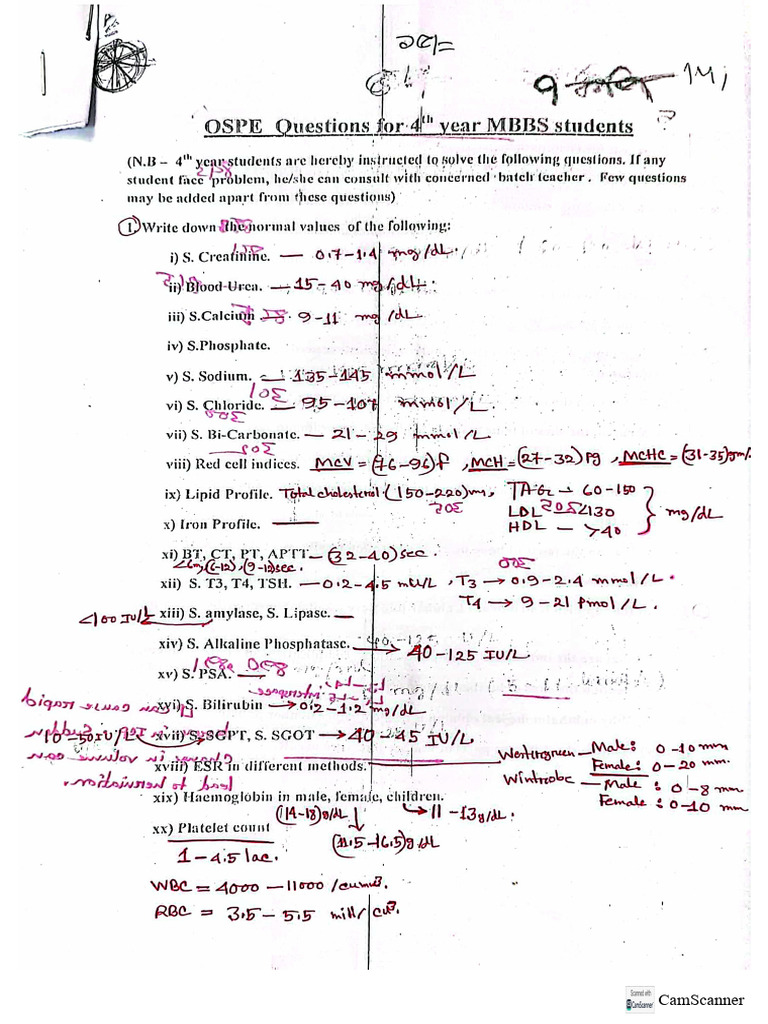 OSPE Questions for 4th year MBBS students
(N.B – 4th year students are hereby instructed to solve the following questions. If any
student face problem, he/she can consult with concerned batch teacher. Few questions
may be added apart from these questions)
1. Write down the normal values of the following:
i) S. Creatinine. — 0.7-1.4 mg/dL.
ii) Blood Urea. — 15-40 mg/dL.
iii) S.Calcium — 9-11 mg/dL
iv) S.Phosphate.
v) S. Sodium. — 135-145 mmol/L
vi) S. Chloride. — 95-107 mmol/L.
vii) S. Bi-Carbonate. — 21-29 mmol/L
viii) Red cell indices. MCV = (76-96)f, MCH = (27-32) Pg, MCHC = (31-35)gm/
ix) Lipid Profile. Total cholesterol (150-220)m, TAG — 60-150
LDL <130
HDL — >40
mg/dL
x) Iron Profile. —
xi) BT, CT, PT, APTT — (32-40) sec.
(9-12)sec.
xii) S. T3, T4, TSH. — 0.2-4.5 mU/L, T3 → 0.9-2.4 mmol/L.
T4 → 9-21 Pmol/L.
<100 IU/L xiii) S. amylase, S. Lipase. —
xiv) S. Alkaline Phosphatase. → 40-125 IU/L
xv) S. PSA. —
xvi) S. Bilirubin → 0.2-1.2 mg/dL
10-50IU/L xvii) S. SGPT, S. SGOT → 40-45 IU/L
xviii) ESR in different methods. Westergreen — Male: 0-10 mm
Female: 0-20 mm.
Wintrobe — Male: 0-8 mm
Female: 0-10 mm
xix) Haemoglobin in male, female, children.
(14-18)g/dL → 11-13g/dL.
xx) Platelet count (11.5-16.5)g/dL
1-4.5 lac.
WBC = 4000-11000 /cumm3.
RBC = 3.5-5.5 mill/cu3.
Scanned with
CamScanner
CamScanner